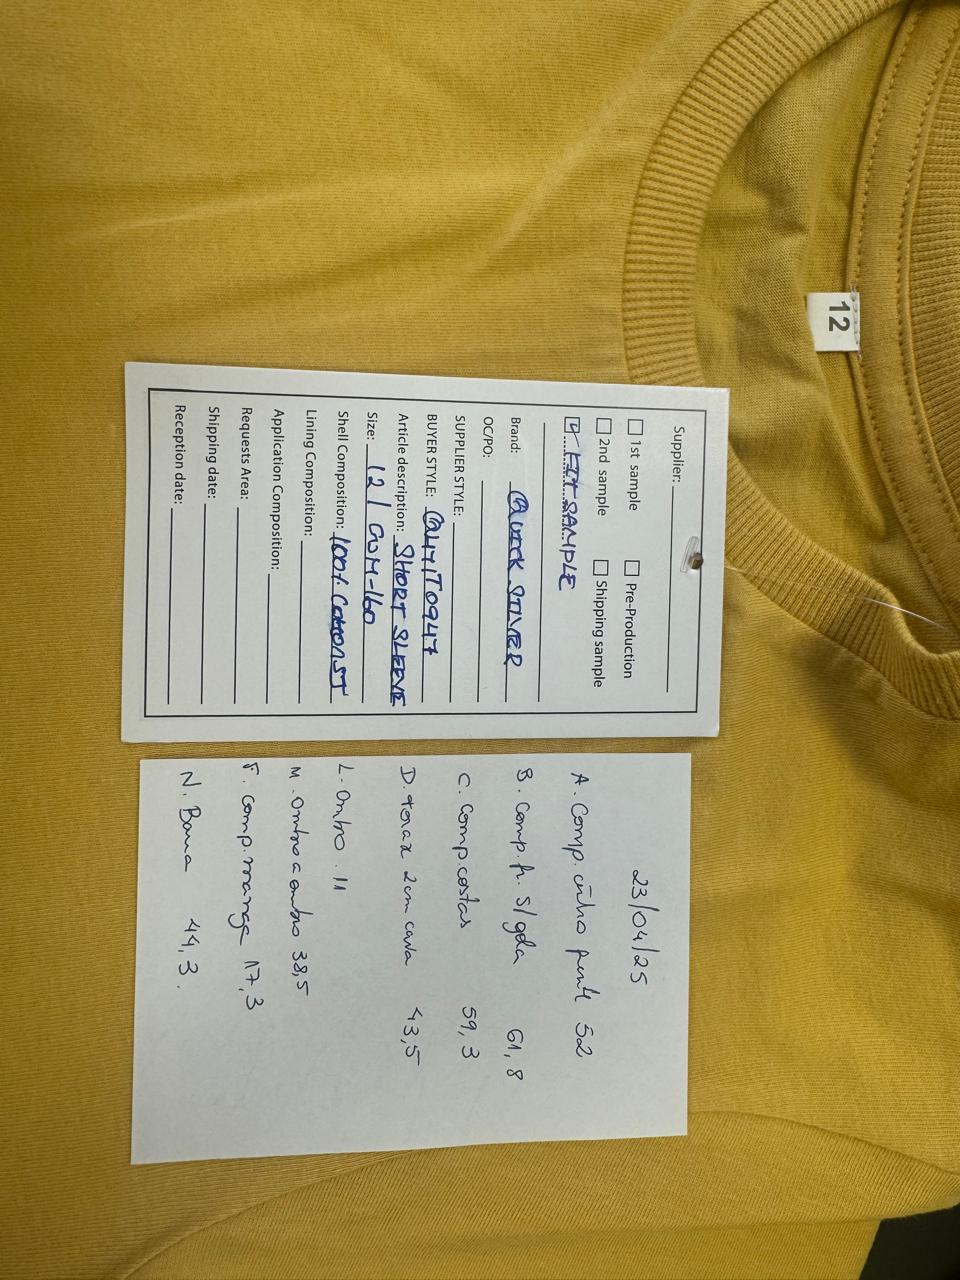 12
Supplier:
1st sample Pre-Production
2nd sample Shipping sample
FIT SAMPLE
Brand: QUICK SILVER
OC/PO:
SUPPLIER STYLE:
BUYER STYLE: @4M1T0947
Article description: SHORT SLEEVE
Size: 12 / GSM-160
Shell Composition: 100%
Lining Composition:
Application Composition:
Requests Area:
Shipping date:
Reception date:
23/04/25
A. Comp. 52
B. Comp. fr. s/gola 61,8
C. Comp. costas 59,3
D. torax 2cm cava 43,5
L. Ombro. 11
M. Ombro a ombro 38,5
F. Comp. manga 17,3
N. Barra 44,3.